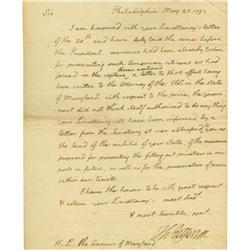 Sir
Philadelphia May 21. 1793.
I am honored with your Excellency's letter
of the 20th and have duly laid the same before
the President. measures had been already taken
for prosecuting such American citizens as had
joined in the capture, a letter to that effect having
been written to the attorney of the US in the state
of Maryland. with respect to the prize, the govern-
ment did not think itself authorised to do any thing
your Excellency will have been informed by a
letter from the Secretary at war addressed to you as
the head of the militia of your state, of the measures
proposed for preventing the fitting out privateers in our
ports in future, as well as for the preservation of peace
within our limits.
I have the honor to be with great respect
& esteem your Excellency's most obedt
& most humble servt.
Th: Jefferson
H. E. the Governor of Maryland